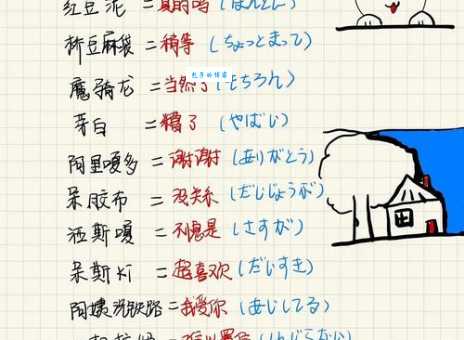 红豆泥 = 真的吗 (ほんとに)
桥豆麻袋 = 稍等 (ちょっとまって)
魔骑龙 = 当然了 (もちろん)
牙白 = 糟了 (やばい)
阿里嘎多 = 谢谢 (ありがとう)
呆胶布 = 没关系 (だじじょうぶ)
洒斯嘎 = 不愧是 (さすが)
呆斯ki = 超喜欢 (だいすき)
阿姨洗铁路 = 我爱你 (あいしてる)